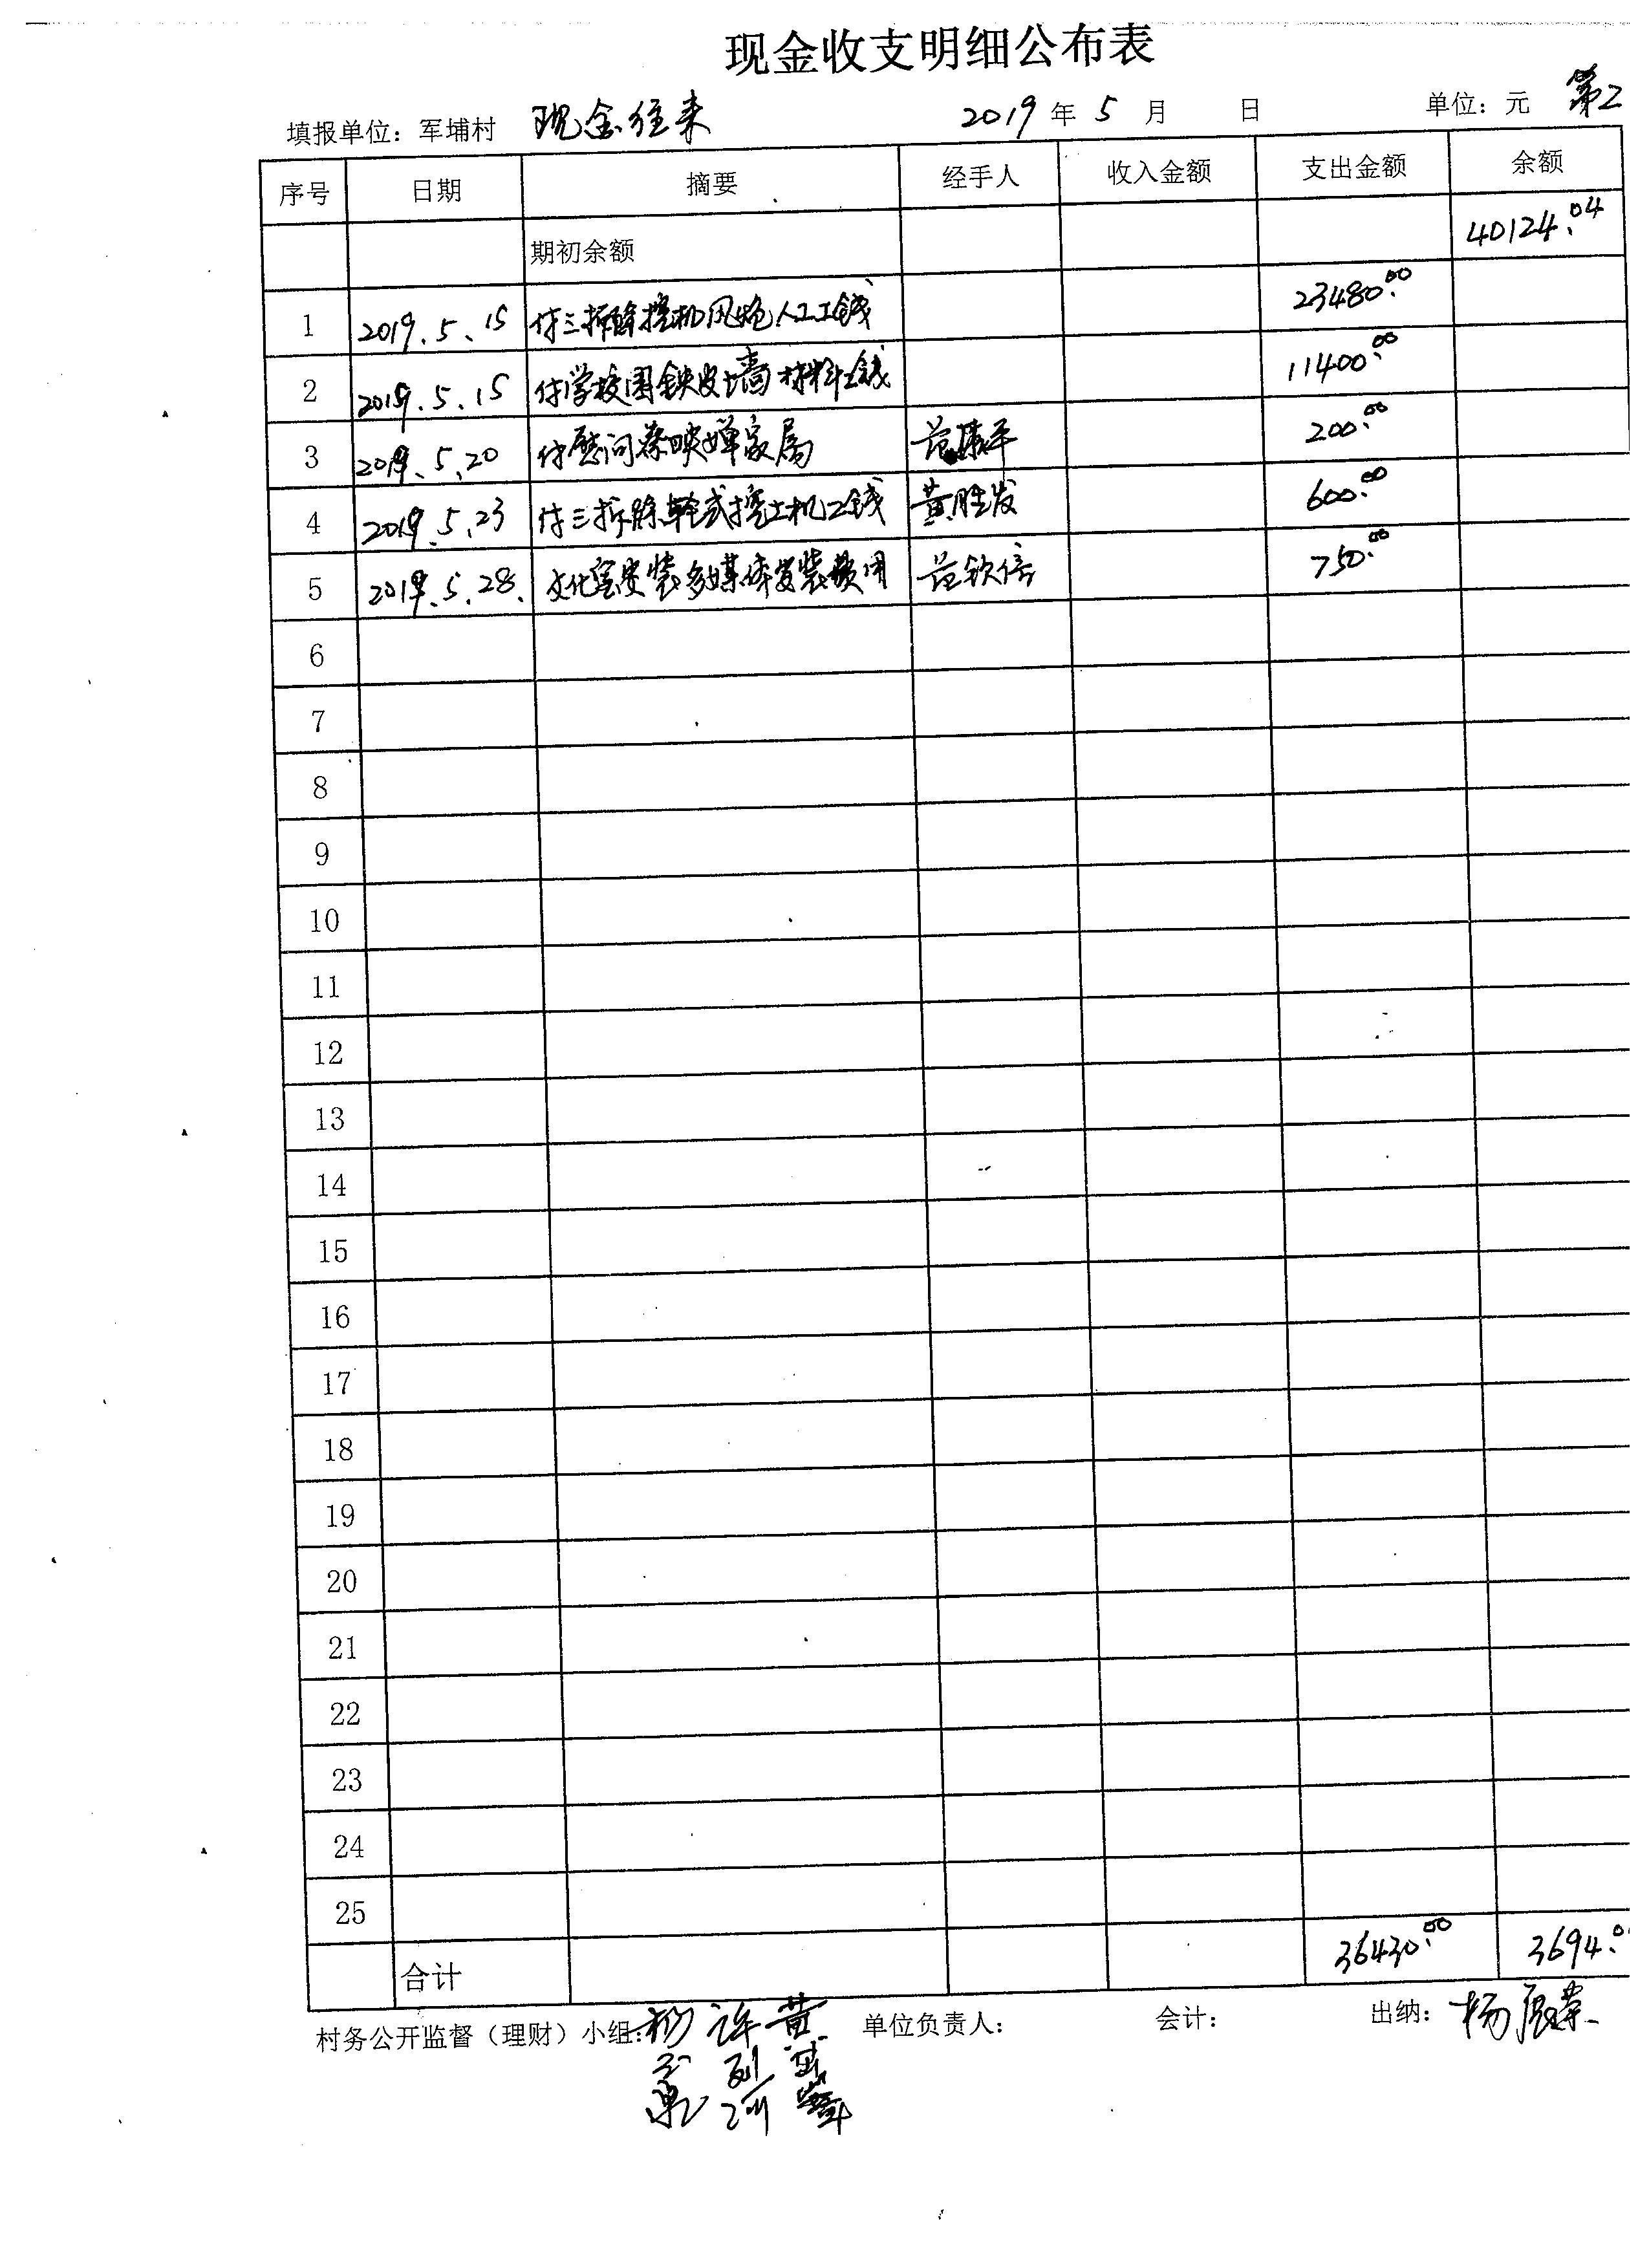 现金收支明细公布表
填报单位：军埔村 现金往来 2019年5月 日 单位：元 第2
序号 日期 摘要 经手人 收入金额 支出金额 余额
期初余额 40124.04
1 2019.5.15 付三拆除挖机风炮人工工钱 23480.00
2 2019.5.15 付学校围铁皮墙材料工钱 11400.00
3 2019.5.20 付慰问蔡映婵家属 200.00
4 2019.5.23 付三拆除轮式挖土机工钱 黄胜发 600.00
5 2019.5.28. 文化室安装多媒体安装费用 范钦信 750.00
6
7
8
9
10
11
12
13
14
15
16
17
18
19
20
21
22
23
24
25
合计 36430.00 3694.0
村务公开监督（理财）小组： 单位负责人： 会计： 出纳：